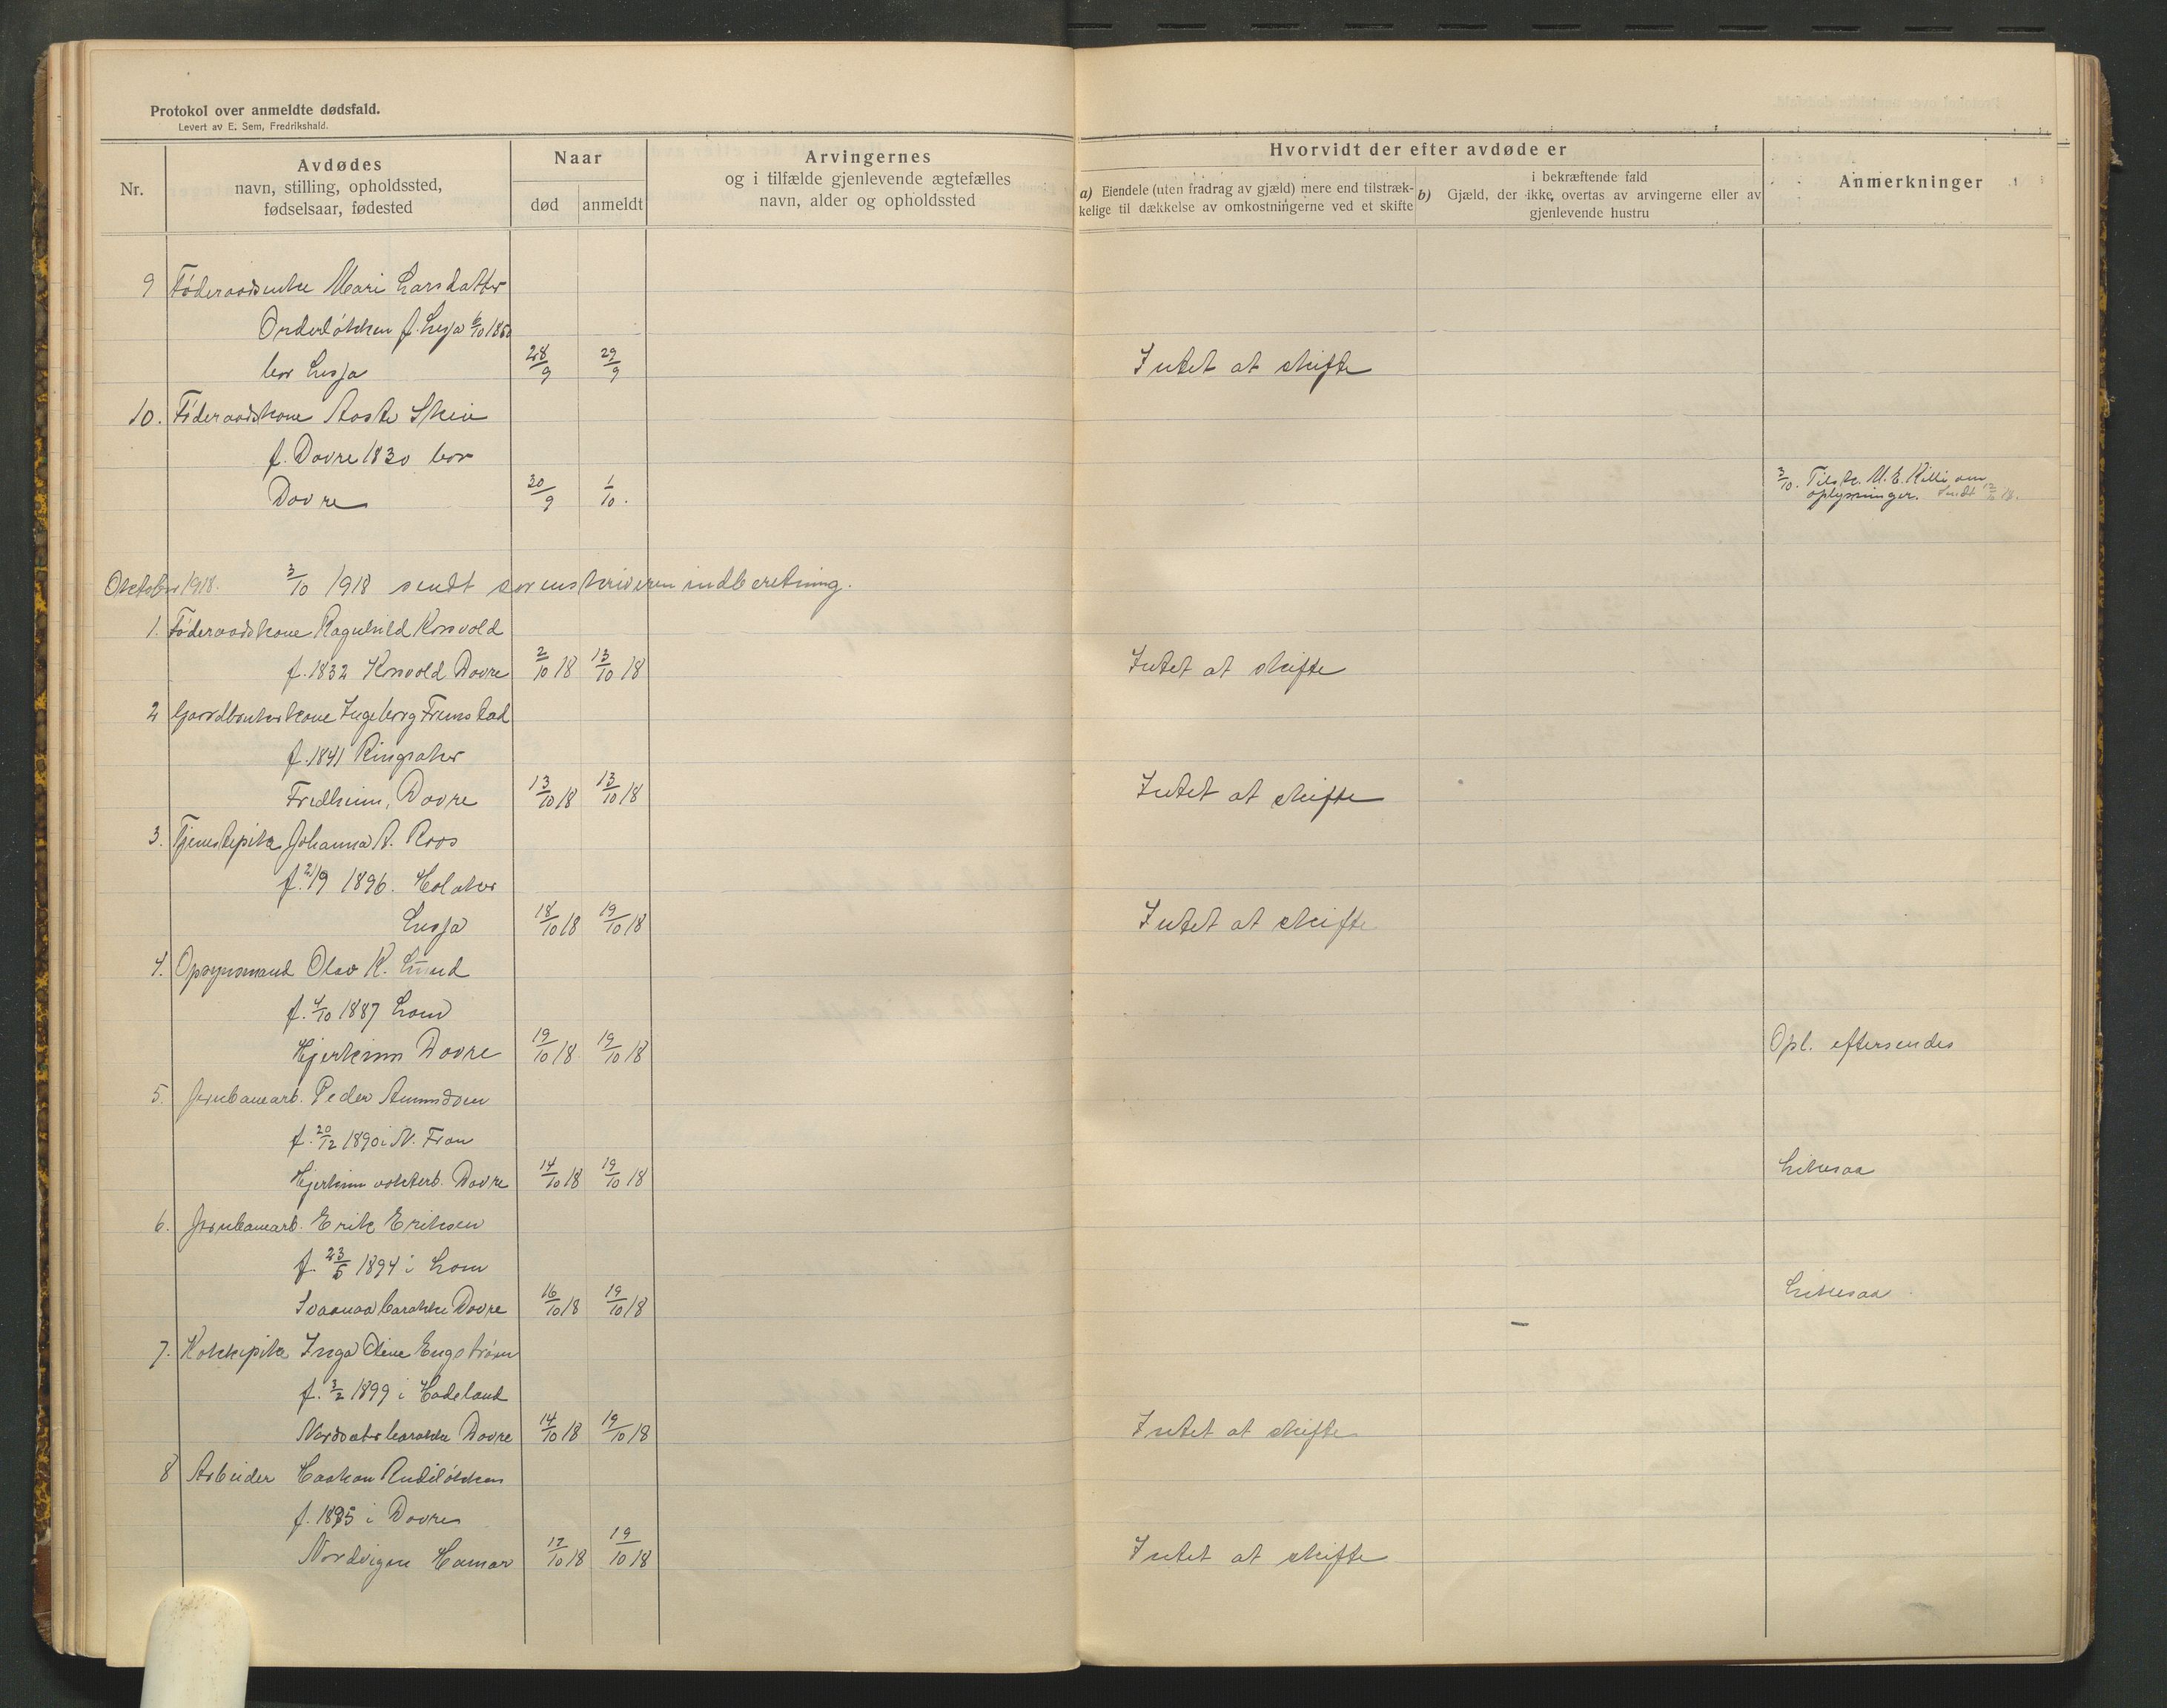 Protokol over anmeldte dødsfald.
Levert av E. Sem, Fredrikshald.
Nr.
Avdødes
navn, stilling, opholdssted,
fødselsaar, fødested
Naar
død
anmeldt
Arvingernes
og i tilfælde gjenlevende ægtefælles
navn, alder og opholdssted
Hvorvidt der efter avdøde er
a) Eiendele (uten fradrag av gjæld) mere end tilstræk-
kelige til dækkelse av omkostningerne ved et skifte
i bekræftende fald
b) Gjæld, der ikke overtas av arvingerne eller av
gjenlevende hustru
Anmerkninger
9 Føderaadsenke Mari Larsdatter
f. Lesja 6/10 1850
bor Lesja 28/9 29/9 Intet at skifte
10. Føderaadskone Aaste Skei
f. Dovre 1830 bor
Dovre 30/9 1/10. 3/10. Tilskr. M. E. Killi om
oplysninger. Sendt 12/10 18.
Oktober 1918. 3/10 1918 sendt sorenskriveren indberetning.
1. Føderaadskone Ragnhild Korsvold
f. 1832 Korsvold Dovre 2/10 18 13/10 18 Intet at skifte
2 Gaardbrukerkone Ingeborg Frenstad
f. 1841 Ringsaker
Fredheim, Dovre 13/10 18 13/10 18 Intet at skifte
3. Tjenestepike Johanna A. Roos
f. 21/9 1896. Holaker
Lesja 18/10 18 19/10 18 Intet at skifte
4. Opsynsmand Olav K. Lund
f. 4/10 1887 Lom
Hjerkinn Dovre 19/10 18 19/10 18 Opl. eftersendes
5. Jernbanearb. Peder Amundsen
f. 20/12 1890 i N. Fron
Hjerkinn vokterb. Dovre 14/10 18 19/10 18 Likesaa
6. Jernbanearb. Erik Eriksen
f. 23/5 1894 i Lom
Svaanaa barakke Dovre 16/10 18 19/10 18 Likesaa
7. Kokkepike Inga Oline Engstrøm
f. 3/2 1899 i Hadeland
barakke Dovre 14/10 18 19/10 18 Intet at skifte
8 Arbeider Haakon Rudiløkken
f. 1895 i Dovre
Nordvigen Hamar 17/10 18 19/10 18 Intet at skifte